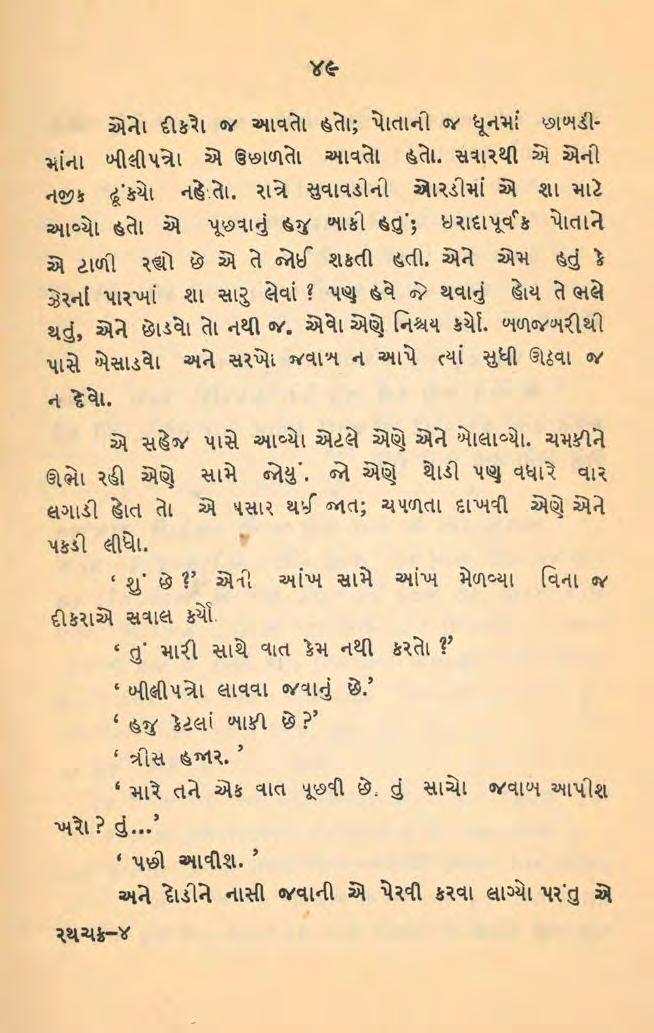 ૪૯
એનો દીકરો જ આવતો હતો; પોતાની જ ધૂનમાં છાબડી-
માંના બીલીપત્રો એ ઉછાળતો આવતો હતો. સવારથી એ એની
નજીક ઢૂંકયો નહેાતો. રાત્રે સુવાવડીની ઓરડીમાં એ શા માટે
આવ્યો હતો એ પૂછવાનું હજુ બાકી હતું; ઇરાદાપૂર્વક પોતાને
એ ટાળી રહ્યો છે એ તે જોઈ શકતી હતી. એને એમ હતું કે
ઝેરનાં પારખાં શા સારુ લેવાં ? પણ હવે જે થવાનું હોય તે ભલે
થતું, એને છોડવો તો નથી જ. એવો એણે નિશ્ચય કર્યો. બળજબરીથી
પાસે બેસાડવો અને સરખો જવાબ ન આપે ત્યાં સુધી ઊઠવા જ
ન દેવો.
એ સહેજ પાસે આવ્યો એટલે એણે એને બોલાવ્યો. ચમકીને
ઊભો રહી એણે સામે જોયું. જો એણે થોડી પણ વધારે વાર
લગાડી હોત તો એ પસાર થઈ જાત; ચપળતા દાખવી એણે એને
પકડી લીધો.
‘ શું છે ?’ એની આંખ સામે આંખ મેળવ્યા વિના જ
દીકરાએ સવાલ કર્યો.
‘ તું મારી સાથે વાત કેમ નથી કરતો ?’
‘ બીલીપત્રો લાવવા જવાનું છે.’
‘ હજુ કેટલાં બાકી છે ?’
‘ ત્રીસ હજાર. ’
‘ મારે તને એક વાત પૂછવી છે. તું સાચો જવાબ આપીશ
ખરો ? તું...’
‘ પછી આવીશ. ’
અને દોડીને નાસી જવાની એ પેરવી કરવા લાગ્યો પરંતુ એ
રથચક્ર–૪